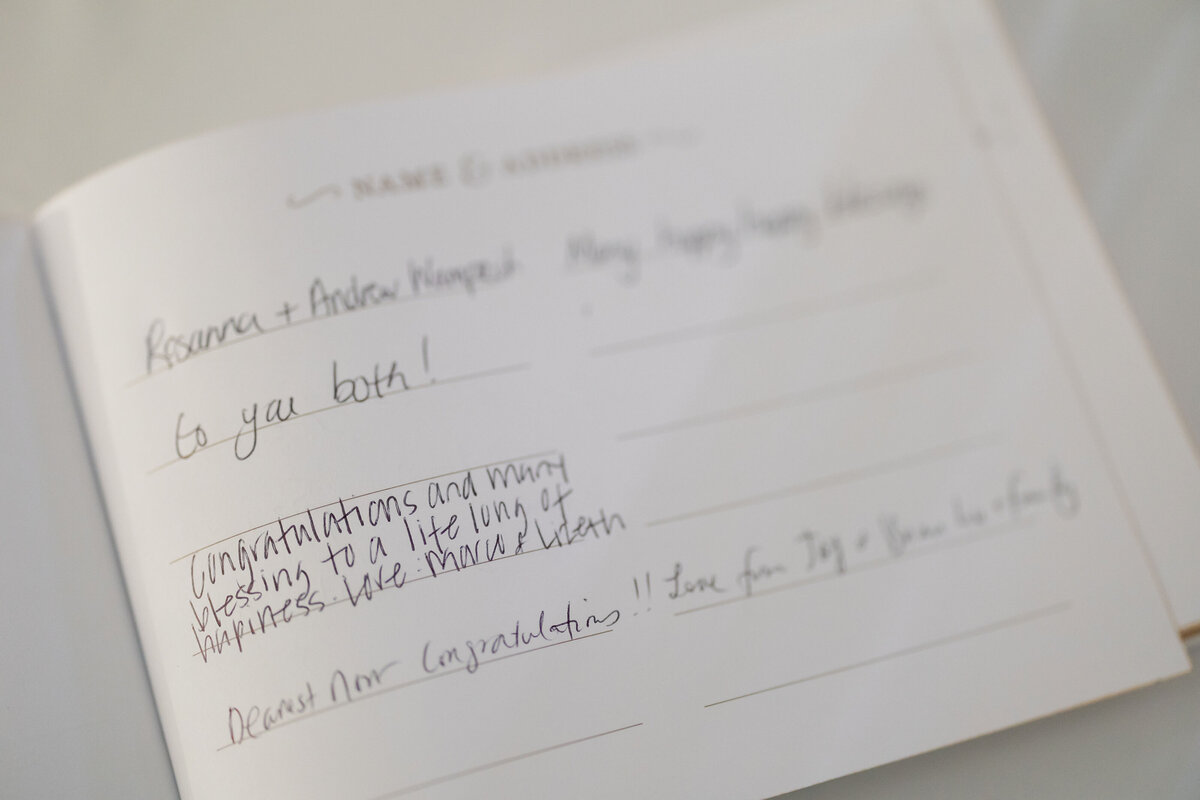 NAME & ADDRESS
Rosanna + Andrew Many happy happy blessings
to you both!
Congratulations and many
blessing to a life long of
hapiness. Love: Marco &
Dearest Noor Congratulations!! Love from Joy + + family